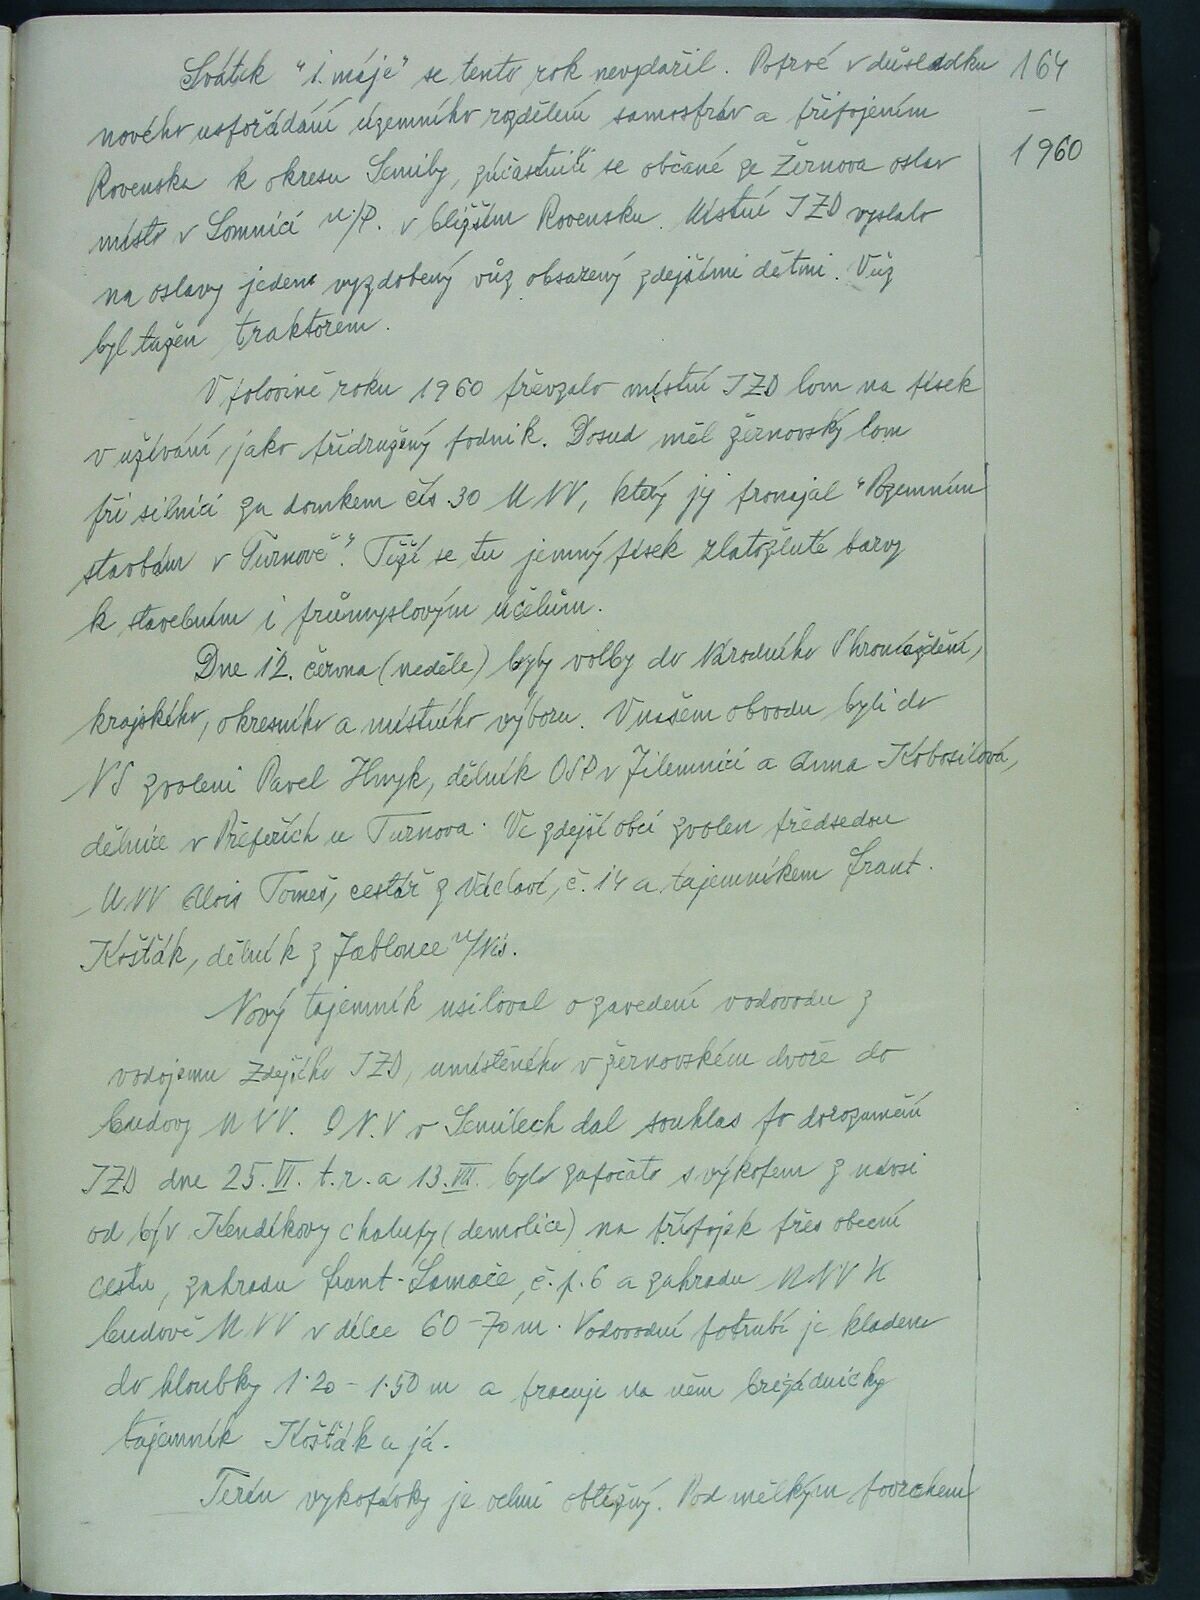 Svátek "1. máje" se tento rok nevydařil. Poprvé v důsledku
164
–
1960
nového uspořádání územního rozdělení samospráv a připojením
Rovenska k okresu Semily, zúčastnili se občané ze Žernova oslav
místo v Lomnici n./P. v bližším Rovensku. Místní JZD vyslalo
na oslavy jeden vyzdobený vůz obsazený zdejšími dětmi. Vůz
byl tažen traktorem.
V polovině roku 1960 převzalo místní JZD lom na písek
v užívání, jako přidružený podnik. Dosud měl žernovský lom
při silnici za domkem čís. 30 MNV, který jej pronajal "Pozemním
stavbám v Turnově". Těží se tu jemný písek zlatožluté barvy
k stavebním i průmyslovým účelům.
Dne 12. června (neděle) byly volby do Národního Shromáždění,
krajského, okresního a místního výboru. V našem obvodu byli do
NS zvoleni Pavel Hmyk, dělník OSP v Jilemnici a Anna Kobosilová,
dělnice v Přepeřích u Turnova. Ve zdejší obci zvolen předsedou
MNV Alois Tomeš, cestář z Václaví, č. 14 a tajemníkem Frant.
Košťák, dělník z Jablonce n/Nis.
Nový tajemník usiloval o zavedení vodovodu z
vodojemu zdejšího JZD, umístěného v žernovském dvoře do
budovy MNV. ONV v Semilech dal souhlas po dorozumění
JZD dne 25. VI. t. r. a 13. VII. bylo započato s výkopem z návsi
od b/v Kendíkovy chalupy (demolice) na přípojek přes obecní
cestu, zahradu Frant. Lamače, č. p. 6 a zahradu MNV k
budově MNV v délce 60–70 m. Vodovodní potrubí je kladeno
do hloubky 1·20 – 1·50 m a pracuje na něm brigádnicky
tajemník Košťák a já.
Terén vykopávky je velmi obtížný. Pod mělkým povrchem